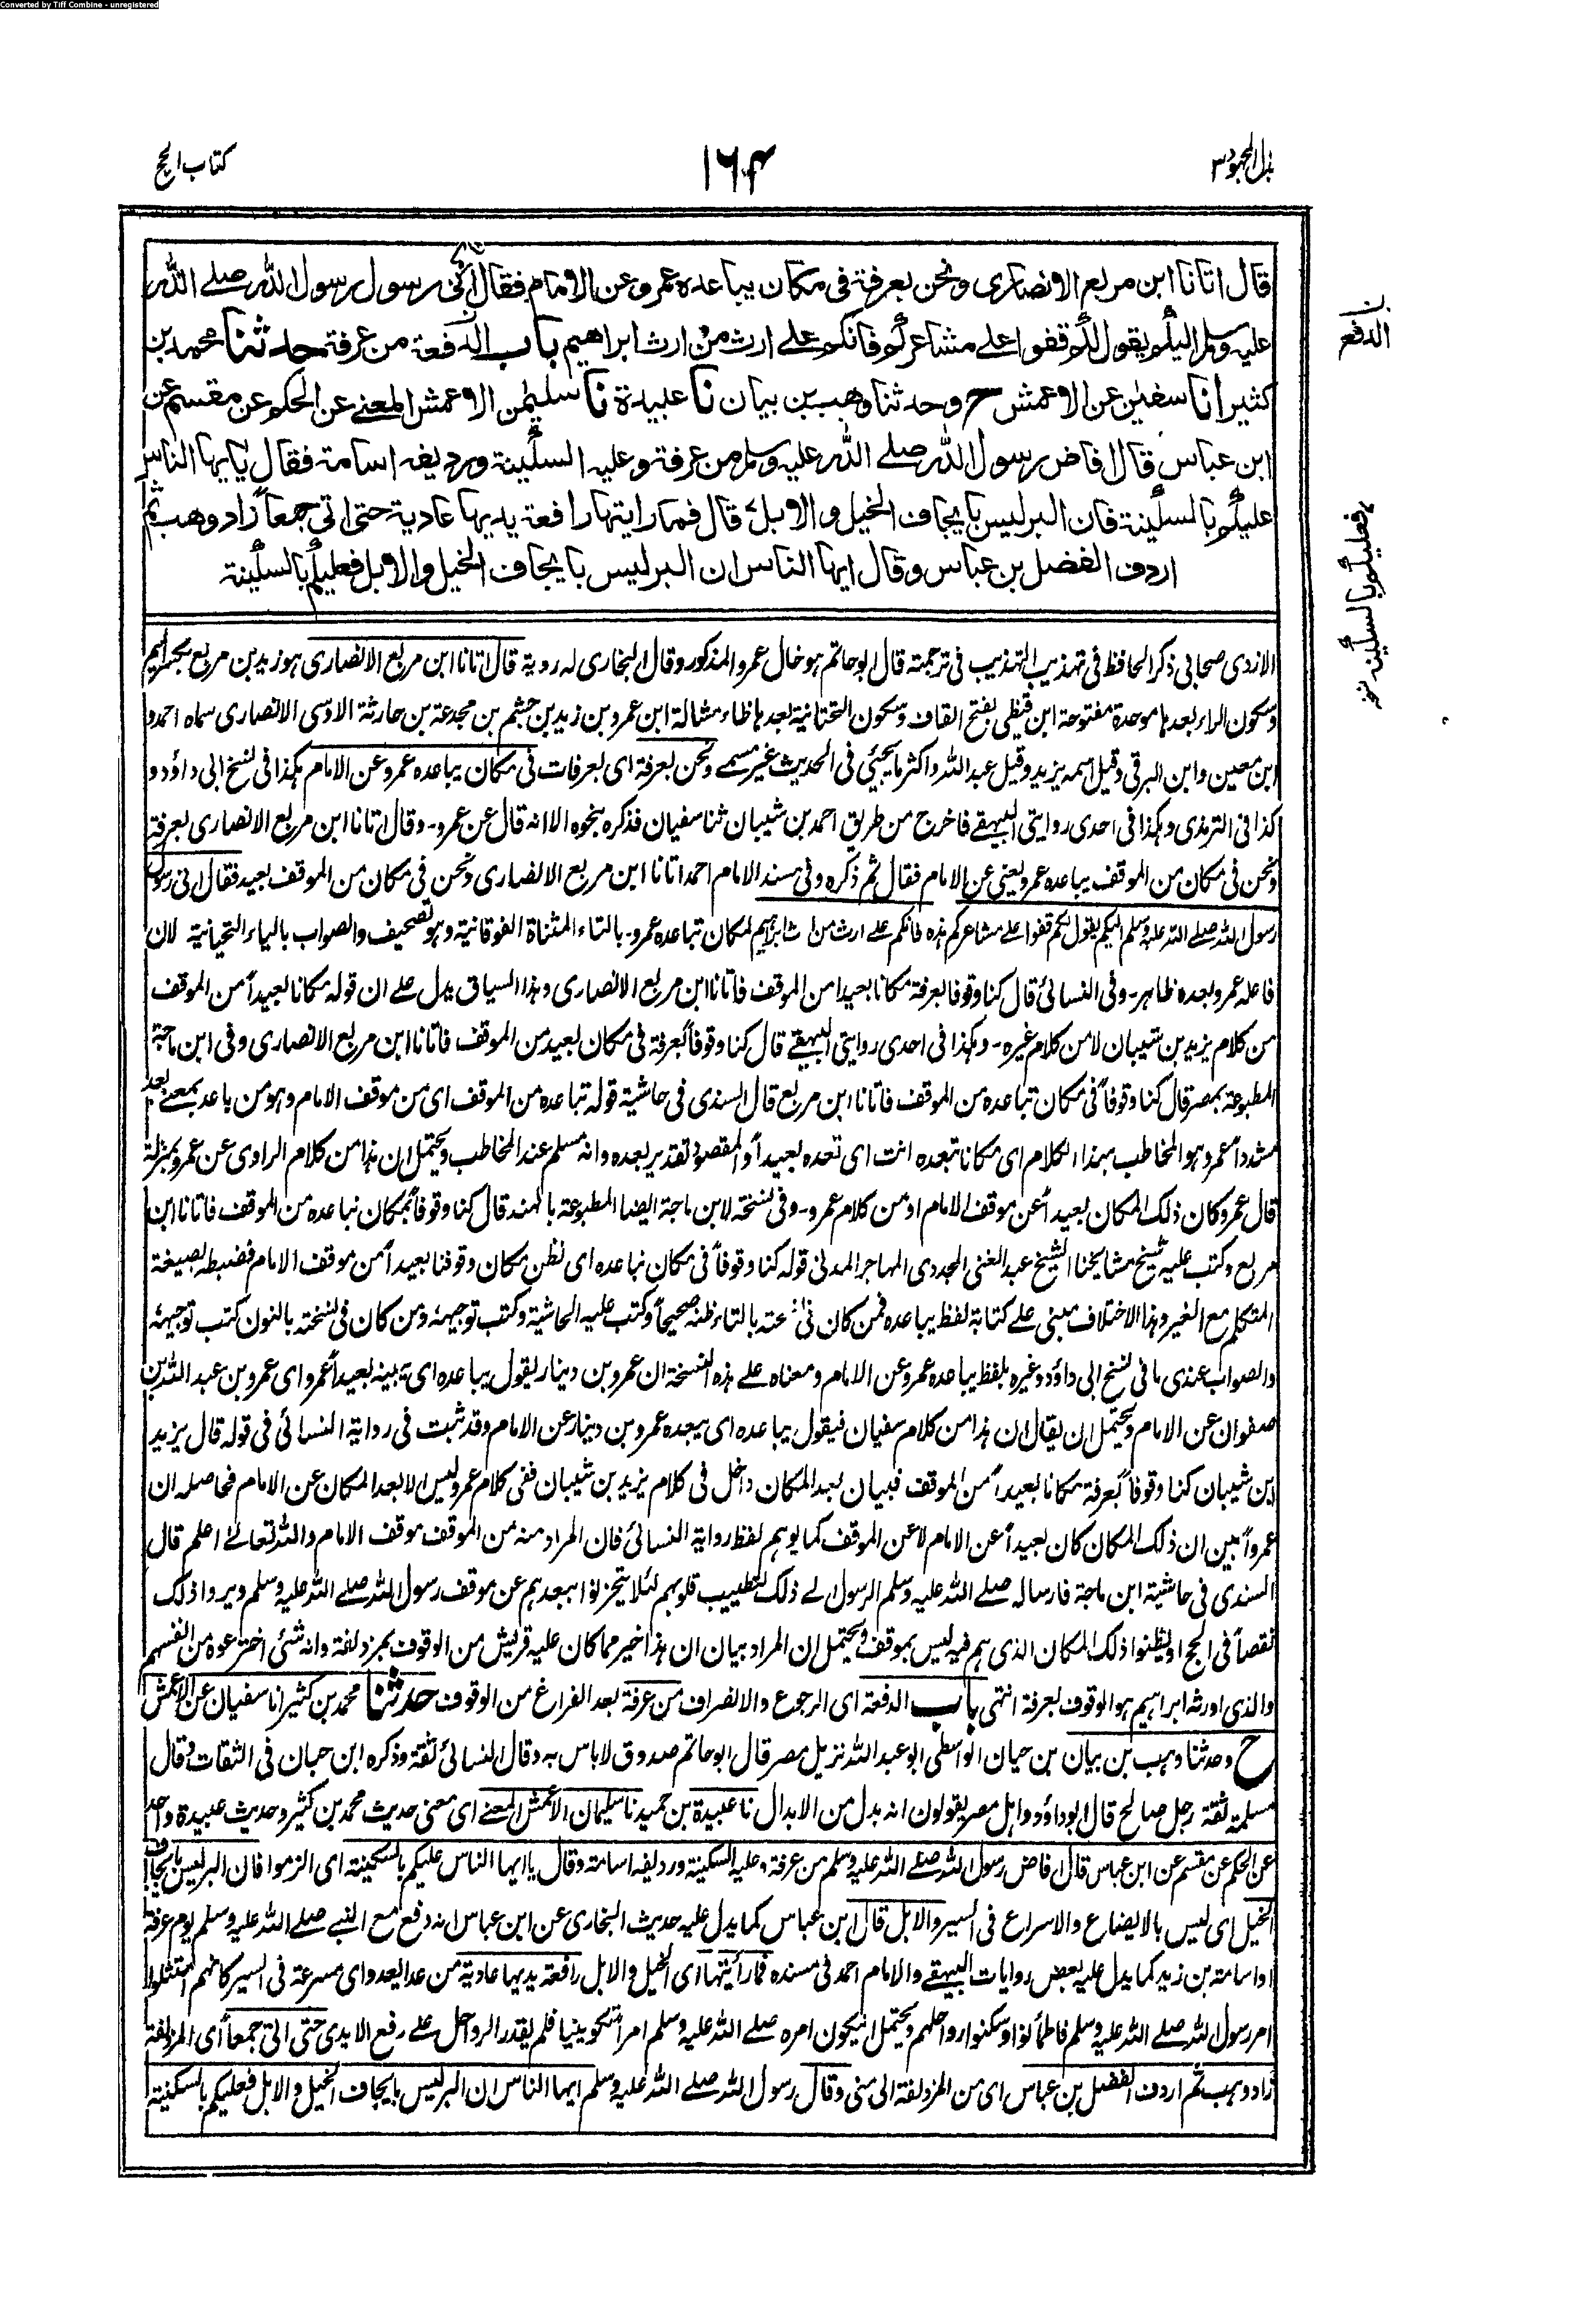 Converted by Tiff Combine - unregistered
بذل المجهود ٣
١٦٤
كتاب الحج
قال اتانا ابن مربع الانصاری ونحن بعرفة فی مكان يباعده عمرو عن الامام فقال انی رسول رسول الله صلے الله
عليه وسلم اليكم يقول لكم قفوا علے مشاعركم فانكم علے ارث من ارث ابراهيم باب الدفعة من عرفة حدثنا محمد بن
كثير انا سفيٰن عن الاعمش ح وحدثنا وهب بن بيان نا عبيدة نا سليمٰن الاعمش المعنے عن الحكم عن مقسم عن
ابن عباس قال افاض رسول الله صلے الله عليه وسلم من عرفة وعليه السكينة ورديفه اسامة فقال يايها الناس
عليكم بالسكينة فان البر ليس بايجاف الخيل والابل قال فما رايتها رافعة يديها عادية حتى اتی جمعاً زاد وهب ثم
اردف الفضل بن عباس وقال ايها الناس ان البر ليس بايجاف الخيل والابل فعليكم بالسكينة
ن
الدفع
فعليكم بالسكينة نخه
الازدی صحابی ذكر الحافظ فی تهذيب التهذيب فی ترجمته قال ابو حاتم هو خال عمرو المذكور وقال البخاری له روية قال اتانا ابن مربع الانصاری هو زيد بن مربع بكسر الميم
وسكون الراء بعدها موحدة مفتوحة ابن قيظی بفتح القاف وسكون التحتانية بعدها ظاء مشالة ابن عمرو بن زيد بن جشم بن مجدعة بن حارثة الاوسی الانصاری سماه احمد و
ابن معين وابن البرقی وقيل اسمه يزيد وقيل عبد الله واكثر ما يجيئ فی الحديث غير مسمے ونحن بعرفة ای بعرفات فی مكان يباعده عمرو عن الامام هكذا فی نسخ ابی داؤد و
كذا فی الترمذی وهكذا فی احدی روايتی البيهقے فاخرج من طريق احمد بن شيبان ثنا سفيان فذكره بنحوه الا انه قال عن عمرو۔ وقال اتانا ابن مربع الانصاری بعرفة
ونحن فی مكان من الموقف يباعده عمرو يعنی عن الامام فقال ثم ذكره وفی مسند الامام احمد اتانا ابن مربع الانصاری ونحن فی مكان من الموقف بعيد فقال انی رسول
رسول الله صلے الله عليه وسلم اليكم يقول لكم قفوا علے مشاعركم هذه فانكم علے ارث من ابراهيم لمكان تباعده عمرو۔ بالتاء المثناة الفوقانية وهو تصحيف والصواب بالياء التحتانية لان
فاعله عمرو بعده ظاهر۔ وفی النسائی قال كنا وقوفا بعرفة مكانا بعيدا من الموقف فاتانا ابن مربع الانصاری وهذا السياق يدل علے ان قوله مكانا بعيداً من الموقف
من كلام يزيد بن شيبان لا من كلام غيره۔ وهكذا فی احدی روايتی البيهقے قال كنا وقوفاً بعرفة فی مكان بعيد من الموقف فاتانا ابن مربع الانصاری وفی ابن ماجة
المطبوعة بمصر قال كنا وقوفاً فی مكان تباعده من الموقف فاتانا ابن مربع قال السندی فی حاشية قوله تباعده من الموقف ای من موقف الامام وهو من باعد بمعنے بعد
مشددا عمرو وهو المخاطب بهذا الكلام ای مكانا تبعده انت ای تعده بعيداً والمقصود تقدير بعده وانه مسلم عند المخاطب ويحتمل ان هذا من كلام الراوی عن عمرو بمنزلة
قال عمرو وكان ذلك المكان بعيداً عن موقف الامام او من كلام عمرو۔ وفی نسخة لابن ماجة ايضا المطبوعة بالهند قال كنا وقوفاً بمكان نباعده من الموقف فاتانا ابن
مربع وكتب عليه شيخ مشايخنا الشيخ عبد الغنی المجددی المهاجر المدنی قوله كنا وقوفاً فی مكان نباعده ای نظن مكان وقوفنا بعيداً من موقف الامام فضبطه بصيغة
المتكلم مع الغير وهذا الاختلاف مبنی علے كتابة لفظ يباعده فمن كان فی بالتاء ظنه صحيحاً وكتب عليه الحاشية وكتب توجيهه ومن كان فی نسخته بالنون كتب توجيهه
والصواب عندی ما فی نسخ ابی داؤد وغيره بلفظ يباعده عمرو عن الامام ومعناه علے هذه النسخة ان عمرو بن دينار يقول يباعده ای يبينه بعيداً عمرو ای عمرو بن عبد الله بن
صفوان عن الامام ويحتمل ان يقال ان هذا من كلام سفيان فيقول يباعده ای يبعده عمرو بن دينار عن الامام وقد ثبت فی رواية النسائی فی قوله قال يزيد
ابن شيبان كنا وقوفاً بعرفة مكانا بعيداً من الموقف فبيان بعد المكان داخل فی كلام يزيد بن شيبان ففی كلام عمرو ليس الا بعد المكان عن الامام فحاصله ان
عمرواً بين ان ذلك المكان كان بعيداً عن الامام لا عن الموقف كما يوهم لفظ رواية النسائی فان المراد منه من الموقف موقف الامام والله تعالے اعلم قال
السندی فی حاشية ابن ماجة فارساله صلے الله عليه وسلم الرسول لے ذلك لتطييب قلوبهم لئلا يتحزنوا ببعدهم عن موقف رسول الله صلے الله عليه وسلم ويروا ذلك
نقصاً فی الحج او يظنوا ذلك المكان الذی هم فيه ليس بموقف ويحتمل ان المراد بيان ان هذا خير مما كان عليه قريش من الوقوف بمزدلفة وانه شئ اخترعوه من انفسهم
والذی اورثه ابراهيم هو الوقوف بعرفة انتهی باب الدفعة ای الرجوع والانصراف من عرفة بعد الفراغ من الوقوف حدثنا محمد بن كثير انا سفيان عن الاعمش
ح وحدثنا وهب بن بيان بن حيان الواسطی ابو عبد الله نزيل مصر قال ابو حاتم صدوق لا باس به وقال النسائی ثقة وذكره ابن حبان فی الثقات وقال
مسلمة ثقة رجل صالح قال ابو داؤد واهل مصر يقولون انه بدل من الابدال نا عبيدة بن حميد نا سليمان الاعمش المعنے ای معنی حديث محمد بن كثير وحديث عبيدة واحد
عن الحكم عن مقسم عن ابن عباس قال افاض رسول الله صلے الله عليه وسلم من عرفة وعليه السكينة ورديفه اسامة وقال يا ايها الناس عليكم بالسكينة ای الزموا فان البر ليس بايجاف
الخيل ای ليس بالايضاع والاسراع فی السير والابل قال ابن عباس كما يدل عليه حديث البخاری عن ابن عباس انه دفع مع النبے صلے الله عليه وسلم يوم عرفة
او اسامة بن زيد كما يدل عليه بعض روايات البيهقے والامام احمد فی مسنده فما رأيتها ای الخيل والابل رافعة يديها عادية من عدا يعدو ای مسرعة فی السير كانهم امتثلوا
امر رسول الله صلے الله عليه وسلم فاطمأنوا وسكنوا رواحلهم ويحتمل ان يكون امره صلے الله عليه وسلم امرا تكوينيا فلم يقدر الرواحل علے رفع الايدی حتی اتی جمعاً ای المزدلفة
زاد وهب ثم اردف الفضل بن عباس ای من المزدلفة الی منی وقال رسول الله صلے الله عليه وسلم ايها الناس ان البر ليس بايجاف الخيل والابل فعليكم بالسكينة